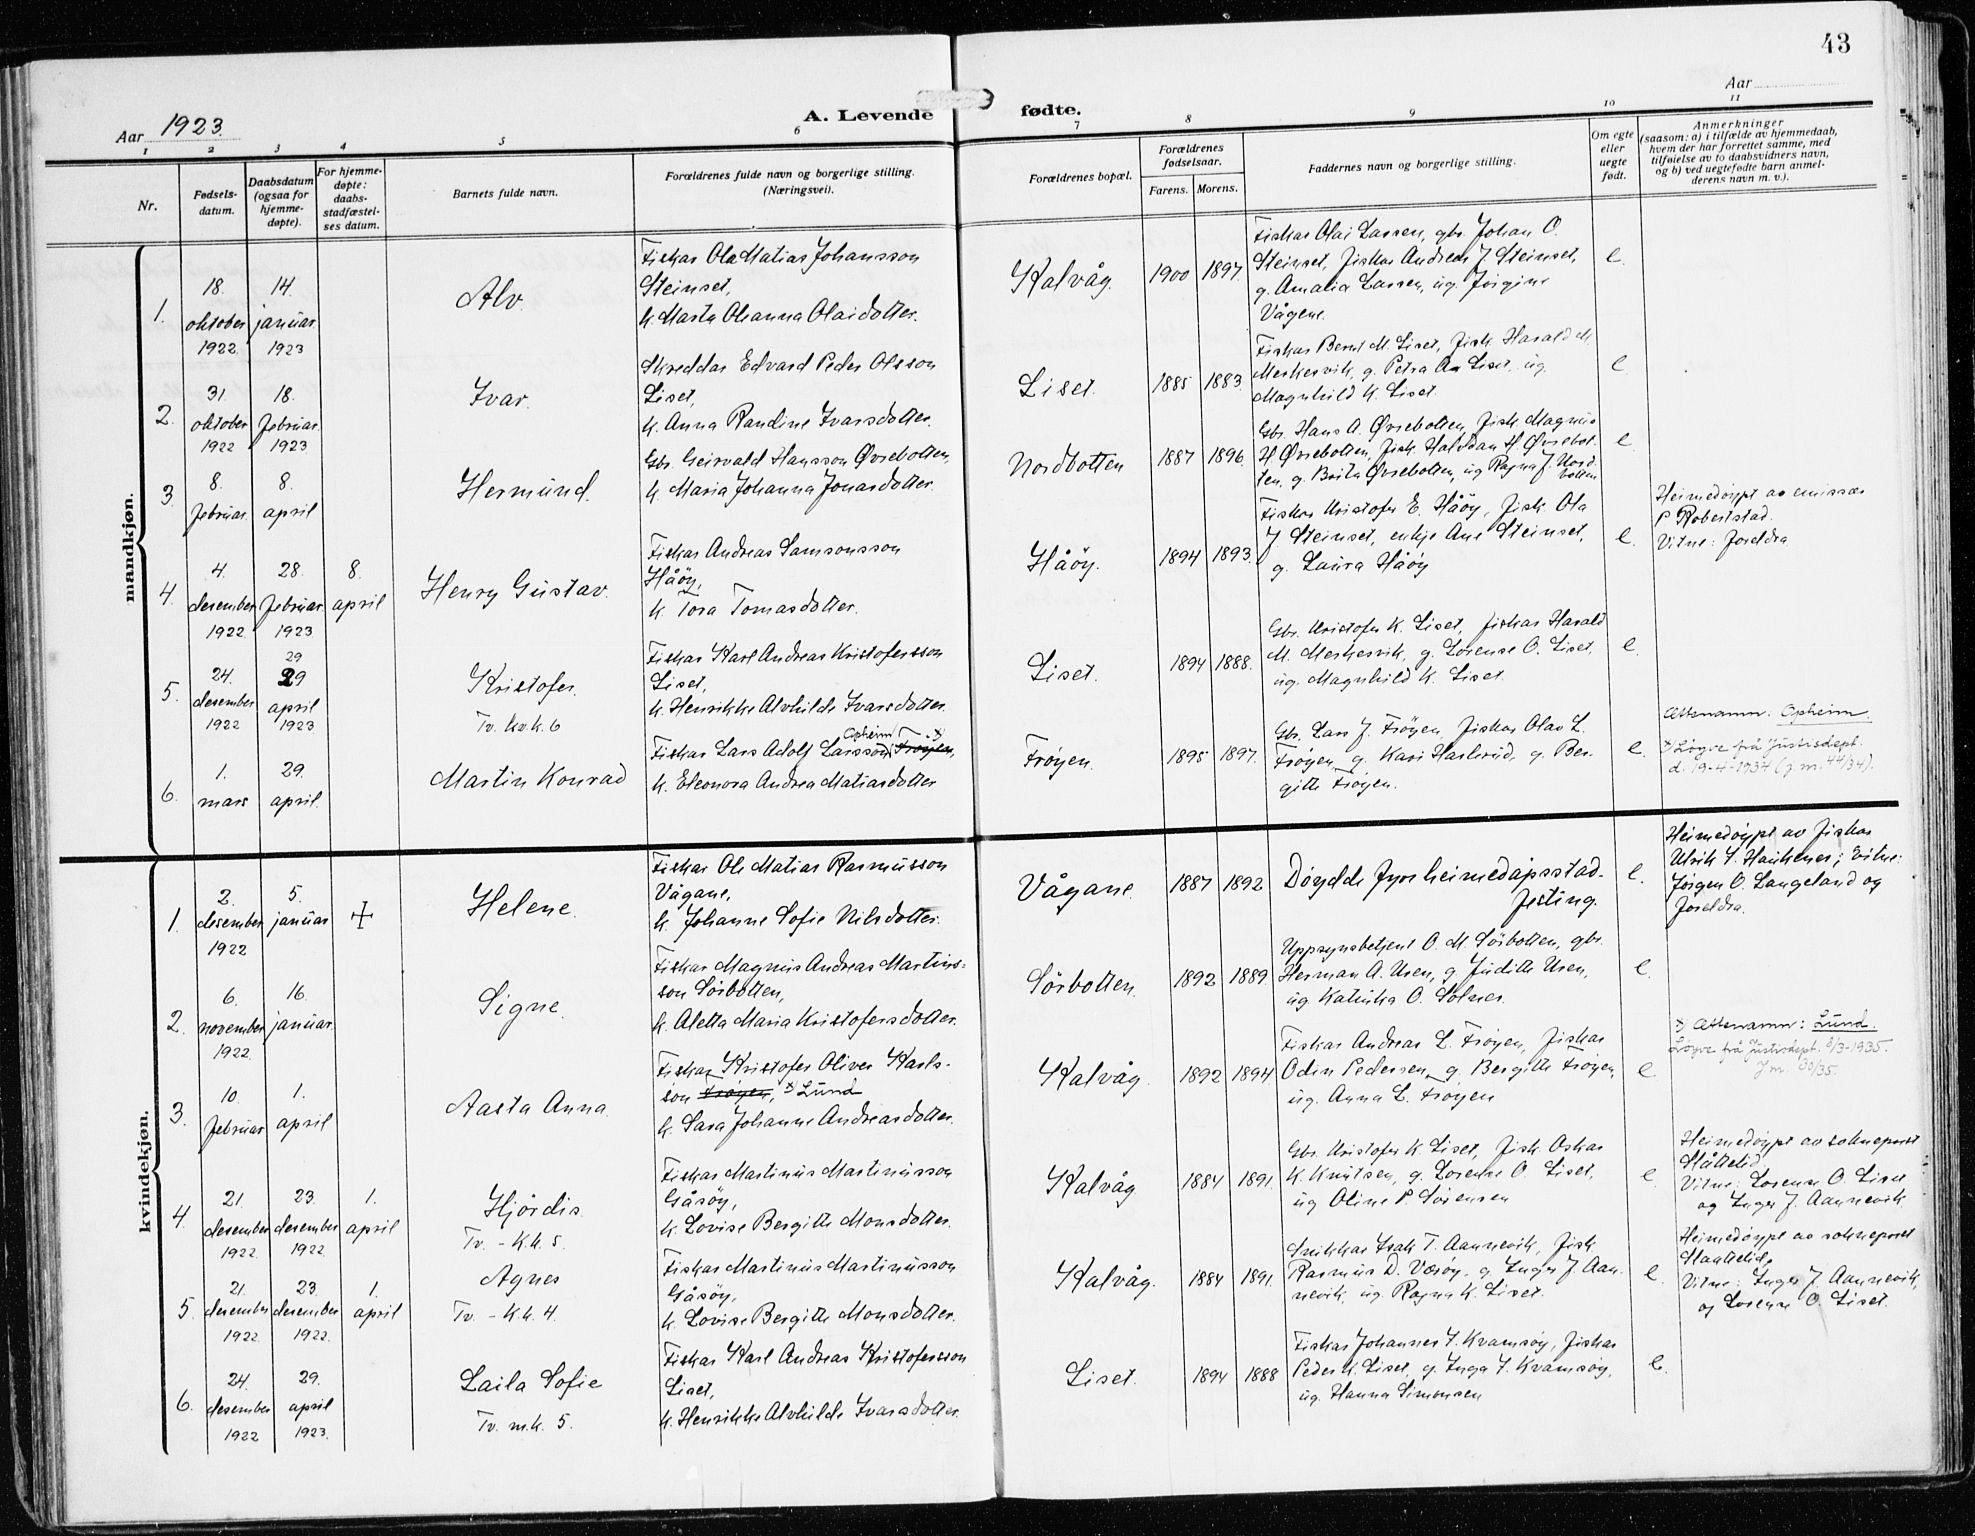 43
Aar 1923.
A. Levende fødte.
Aar
1 2 3 4 5 6 7 8 9 10 11
Nr.
Fødsels-
datum.
Daabsdatum
(ogsaa for
hjemme-
døpte).
For hjemme-
døpte:
daabs-
stadfæstel-
ses datum.
Barnets fulde navn.
Forældrenes fulde navn og borgerlige stilling.
(Næringsvei).
Forældrenes bopæl.
Forældrenes
fødselsaar.
Farens. Morens.
Faddernes navn og borgerlige stilling.
Om egte
eller
uegte
født.
Anmerkninger
(saasom: a) i tilfælde av hjemmedaab,
hvem der har forrettet samme, med
tilføielse av to daabsvidners navn,
og b) ved uegtefødte barn anmel-
derens navn m. v.).
mandkjøn.
1.
18.
oktober
1922.
14.
januar.
1923
Alv.
Fiskar Ola Matias Johansson
Steinset,
k. Marta Oleanna Olaidotter.
Kalvåg.
1900 1897.
Fiskar Olai Larsen, gbr. Johan O.
Steinset, fiskar Andreas J. Steinset,
g. Amalia Larsen, ug. Jørgine
Vågene.
e.
2.
31.
oktober
1922
18.
februar.
1923
Ivar.
Skreddar Edvard Peder Olsson
Liset,
k. Anna Randine Ivarsdotter.
Liset.
1885 1883.
Fiskar Bernt M. Liset, fisk. Harald M.
Merkesvik, g. Petra A. Liset, ug.
Magnhild K. Liset.
e
3.
8.
februar.
8.
april
Hermund.
Gbr. Geirvald Hansson Øvrebotten,
k. Maria Johanna Jonasdotter.
Nordbotten
1887 1896.
Gbr. Hans A. Øvrebotten, fisk. Magnus
H Øvrebotten, fisk. Halvdan H. Øvrebot-
ten, g. Brita Øvrebotten, ug Ragna J. Nord-
botten
e
4.
4.
desember
1922.
28.
februar.
1923
8.
april
Henry Gustav.
Fiskar Andreas Samsonsson
Håöy,
k. Tora Tomasdotter.
Håöy.
1894 1893.
Fiskar Kristofer E. Håöy, fisk. Ola
J. Steinset, enkje Ane Steinset,
g. Laura Håöy
e.
Heimedøypt av emissær
P Robertstad.
Vitne: foreldra
5.
24.
desember
1922
29
29
april
1923
Kristofer.
Tv. kv.k. 6
Fiskar Karl Andreas Kristofersson
Liset,
k. Henrikke Alvhilde Ivarsdotter.
Liset.
1894 1888.
Gbr. Kristofer K. Liset, fiskar Harald
M. Merkesvik, g. Lorense O. Liset,
ug. Magnhild K. Liset.
e.
6.
1.
mars
29.
april.
Martin Konrad
Opheim x)
Fiskar Lars Adolf Larsson Frøyen,
k. Eleonora Andrea Matiasdotter
Frøyen.
1895 1897.
Gbr. Lars J. Frøyen, fiskar Olav L.
Frøyen, g. Kari Haslerud, g. Ber-
gitte Frøyen.
e.
Ættenamn: Opheim
x) Løyve frå Justisdept.
d. 19-4-1934 (j. m. 44/34).
kvindekjøn.
1.
2.
desember
1922
5.
januar
+
Helene.
Fiskar Ole Matias Rasmusson
Vågane,
k. Johanne Sofie Nilsdotter.
Vågane.
1887 1892
Døydde fyrr heimedåpsstad-
festing.
e.
Heimedøypt av fiskar
Ulrik S. Haukenes; Vitne:
Jørgen O. Langeland og
foreldra.
2.
6.
november
1922.
16.
januar.
Signe.
Fiskar Magnus Andreas Martins-
son Sörbotten,
k. Aletta Maria Kristofersdotter.
Sörbotten.
1892 1889.
Uppsynsbetjent O. M. Sörbotten, gbr.
Herman A. Uren, g. Judith Uren,
ug. Katinka O. Solnes.
e.
3.
10.
februar
1.
april
Aasta Anna.
Fiskar Kristofer Oliver Karls-
son Frøyen, x) Lund
k. Sara Johanne Andreasdotter.
Kalvåg.
1892 1894
Fiskar Andreas L. Frøyen, fiskar
Odin Pedersen, g. Bergitte Frøyen,
ug. Anna L. Frøyen
e
x) Ættenamn: Lund.
Løyve frå Justisdept. 8/3-1935.
J m. 30/35.
4.
21.
desember
1922.
23.
desember
1922.
1.
april
Hjördis.
Tv. - K.k. 5.
Fiskar Martinus Martinusson
Gåsöy,
k. Lovise Bergitte Monsdotter.
Kalvåg
1884 1891.
Gbr. Kristofer K. Liset, fisk. Oskar
K. Knutsen, g. Lorense O. Liset,
ug Oline P. Sørensen
e.
Heimedøypt av sokneprest
Ståttelid.
Vitne: Lorense O. Liset
og Inger J. Aannevik
5.
21.
desember
1922
23.
desember
1922.
1.
april
Agnes
Tv. - K.k. 4.
Fiskar Martinus Martinusson
Gåsöy,
k. Lovise Bergitte Monsdotter.
Kalvåg.
1884 1891.
Snikkar Isak T. Aannevik, fisk.
Rasmus D. Værøy, g. Inger J. Aan-
nevik, ug. Ragna K. Liset.
e.
Heimedøypt av sokneprest
Staattelid.
Vitne: Inger J. Aannevik,
og Lorense O. Liset.
6.
24.
desember
1922
29.
april
1923.
Laila Sofie
Tv. m.k. 5.
Fiskar Karl Andreas Kristofersson
Liset,
k. Henrikke Alvhilde Ivarsdotter.
Liset.
1894 1888
Fiskar Johannes J. Kvamsøy, fiskar
Peder K. Liset, g. Inga J. Kvamsøy,
ug. Hanna Simonsen
e.